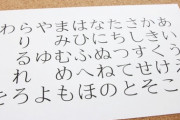 あいうえ
かきくけこ
さしすせそ
たちつてと
なにぬねの
はひふへほ
まみむめも
やゆよ
らりるれろ
わを